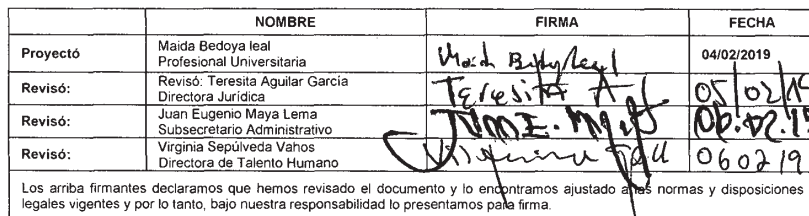 NOMBRE FIRMA FECHA
Proyectó Maida Bedoya leal
Profesional Universitaria Maida Bedoya leal 04/02/2019
Revisó: Revisó: Teresita Aguilar García
Directora Jurídica Teresita A 05/02/19
Revisó: Juan Eugenio Maya Lema
Subsecretario Administrativo 06.02.19
Revisó: Virginia Sepúlveda Vahos
Directora de Talento Humano 060219
Los arriba firmantes declaramos que hemos revisado el documento y lo encontramos ajustado a las normas y disposiciones
legales vigentes y por lo tanto, bajo nuestra responsabilidad lo presentamos para firma.